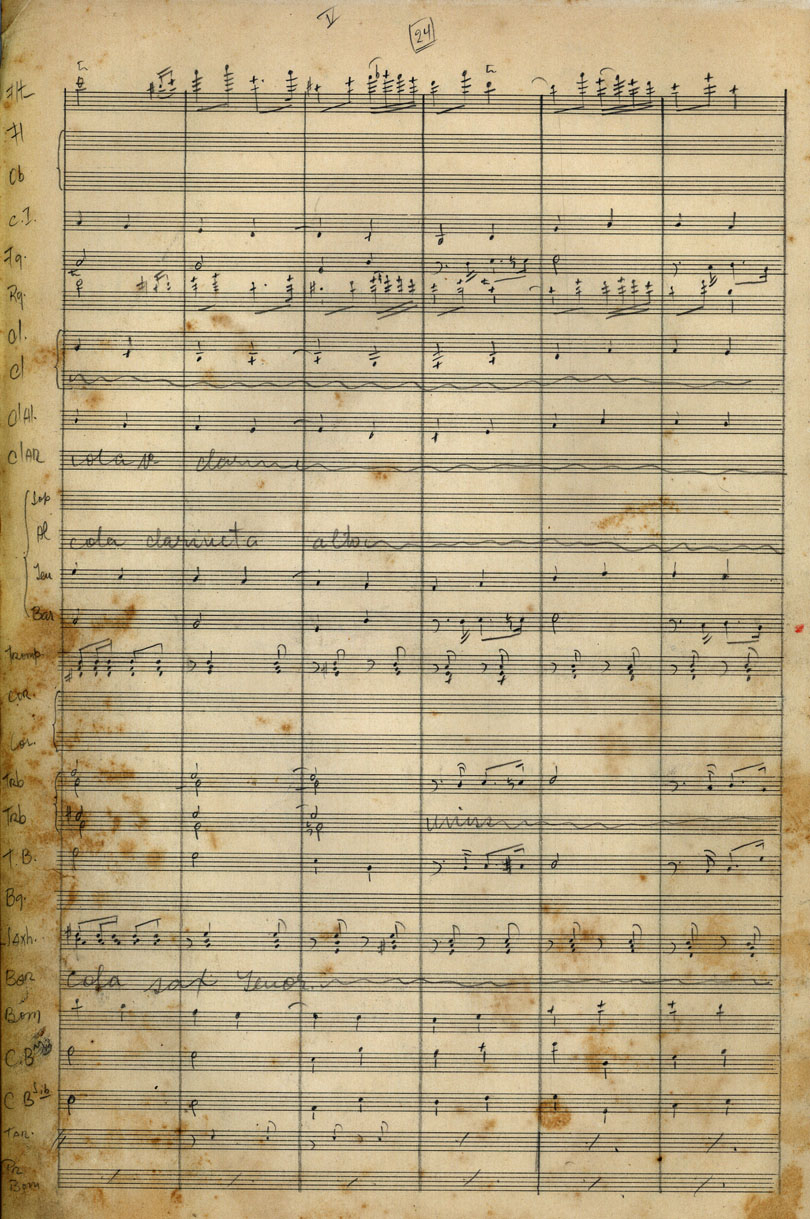 V
24
Fl
Ob
C.I.
Fg.
Rq.
Cl
cola 1º clarine
Sop
Al
cola clarineta alto
Ten
Bar
Tromp
Cor.
Trb
Trb
unins
T.B.
Bg.
Saxh.
Bar
cola sax Tenor
Bom
C.B
C B
Tar.
Bom